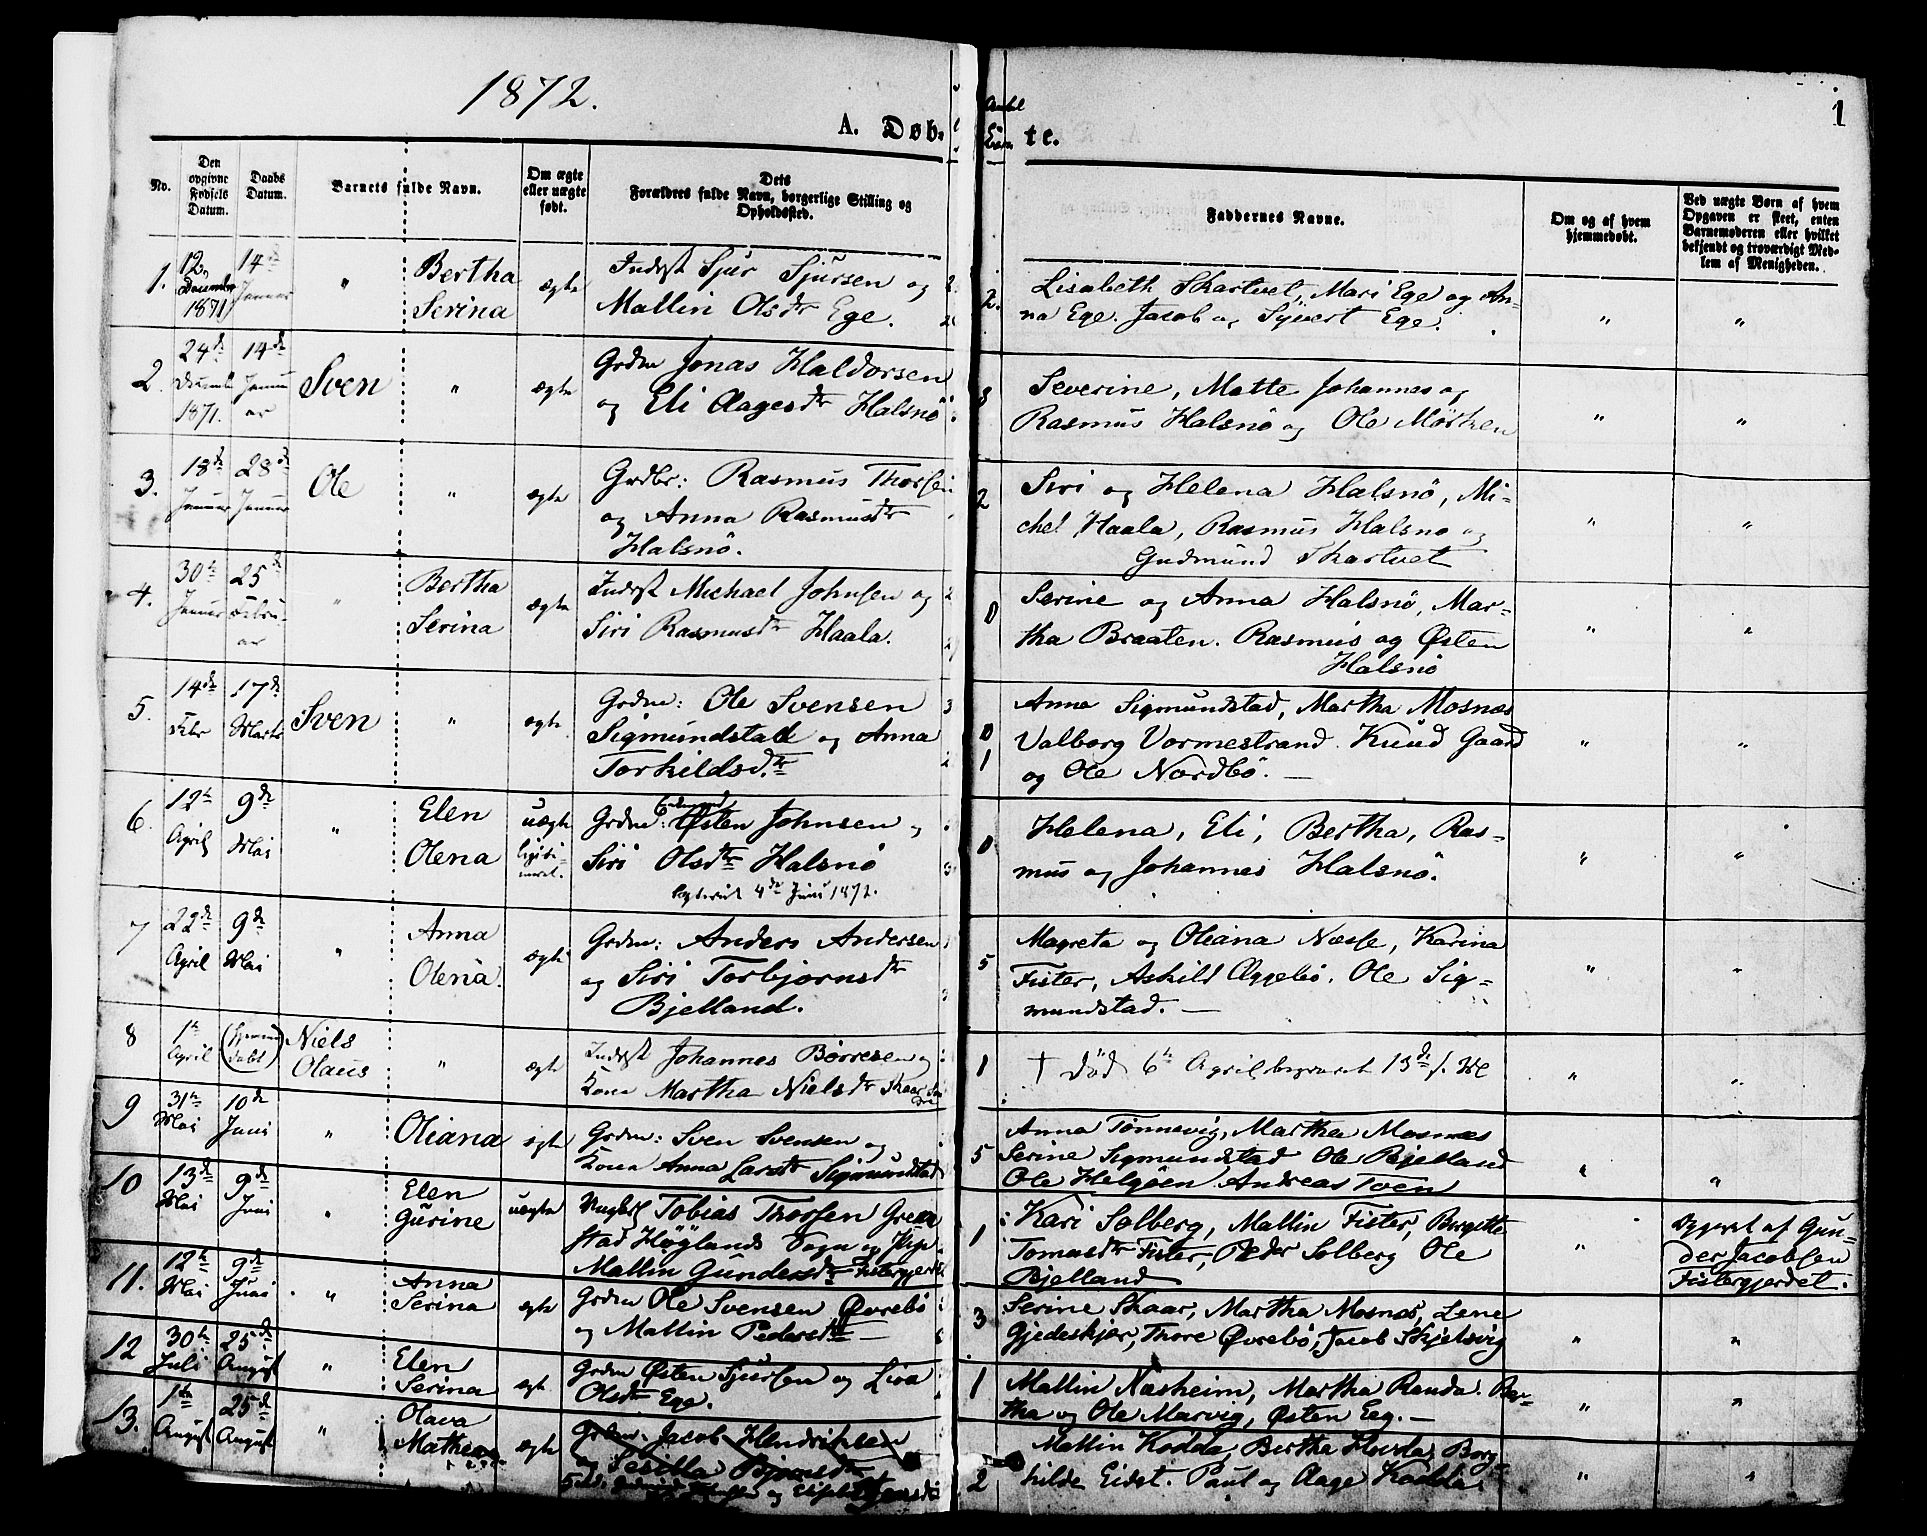 1872.
1
A. Døb-
te.
No.
Den opgivne Fødsels Datum.
Daabs Datum.
Barnets fulde Navn.
Om ægte eller uægte født.
Dets
Forældres fulde Navn, borgerlige Stilling og
Opholdssted.
Antal
Faddernes Navne.
Om og af hvem
hjemmedøbt.
Ved uægte Børn af hvem
Opgaven er skeet, enten
Barnemoderen eller hvilket
bekjendt og troværdigt Med-
lem af Menigheden.
1. 12 December 1871 14de Januar " Bertha Serina ægte
Inderst Sjur Sjursen og
Mallin Olsdtr Ege.
2. Lisabeth Skartvet, Mari Ege og An-
na Ege. Jacob og Syvert Ege. " "
2. 24de Decemb 1871. 14de Januar Sven " ægte
Grdm Jonas Haldorsen
og Eli Aagesdtr Halsnö
3 Severine, Mette Johannes og
Rasmus Halsnö og Ole Mösken " "
3. 18de Januar 28de Januar Ole " ægte
Grdbr: Rasmus Thorsen
og Anna Rasmusdtr
Halsnö.
2 Siri og Helena Halsnö, Mi-
chel Haala, Rasmus Halsnö og
Gudmund Skartvet " "
4. 30te Januar 25de Februar " Bertha Serina ægte
Inderst Michael Johnsen og
Siri Rasmusdtr Haala.
0 Serine og Anna Halsnö, Mar-
tha Braaten. Rasmus og Østen
Halsnö " "
5. 14de Febr 17de Marts Sven " ægte
Grdm: Ole Svensen
Sigmundstad og Anna
Torkildsdtr
0 1 Anna Sigmundstad, Martha Mosnæs
Valborg Vormestrand. Knud Gaard
og Ole Nordbö. — " "
6. 12te April 9de Mai " Elen Olena uægte legitimeret.
Grdm: Østen Johnsen og
Siri Olsdtr Halsnö
Copuleret 4de Juni 1872.
0 Helena, Eli, Bertha, Ras-
mus og Johannes Halsnö. " "
7 22de April 9de Mai " Anna Olena. ægte
Grdm: Anders Andersen
og Siri Torbjornsdtr
Bjelland.
5 Magreta og Oliana Næsse, Karina
Fister, Askild Aggebö. Ole Sig-
mundstad. — " "
8 1te April (hjemmedøbt) Niels Olaus " ægte
Inderst Johannes Børresen og
Kone Martha Nielsdtr Skaar
1 † Död 6te April begravet 13de s. M. " "
9 31te Mai 10de Juni " Oliana ægte
Grdm: Sven Svensen og
Kone Anna Larsdtr Sigmundstad
5 Anna Tönnevig, Martha Mosnæs
Serine Sigmundstad Ole Bjelland
Ole Helgöen Andreas Tven " "
10 13de Mai 9de Juni " Elen Gurine uægte
Ungkarl Tobias Thorsen
Höglands Sogn og Pige
Mallin Gundersdtr Fistergjerdet
1 Kari Solberg, Mallin Fister, Bergitte
Tomasdtr Fister, Peder Solberg Ole
Bjelland "
Opgivet af Gun-
der Jacobsen
Fistergjerdet.
11. 12te Mai 9de Juni " Anna Serina ægte
Grdm Ole Svensen Øvrebö
og Mallin Pedersdtr —
3 Serine Skaar, Martha Mosnæs, Lene
Gjedeskjær, Thore Øvrebö, Jacob Skjelsvig " "
12 30te Juli 25de August " Elen Serina ægte
Grdm Østen Sjursen og Lisa
Olsdtr Ege.
1 Mallin Næsheim, Martha Randa. Ber-
tha og Ole Marvig, Østen Eeg. — " "
13. 1te August 25de August " Olava Mathea ægte
Grdm: Jacob Hendriksen
og
2 Mallin Kodda, Bertha Hovda, Borg-
hilde Eidst. Paul og Aage Kodda " "